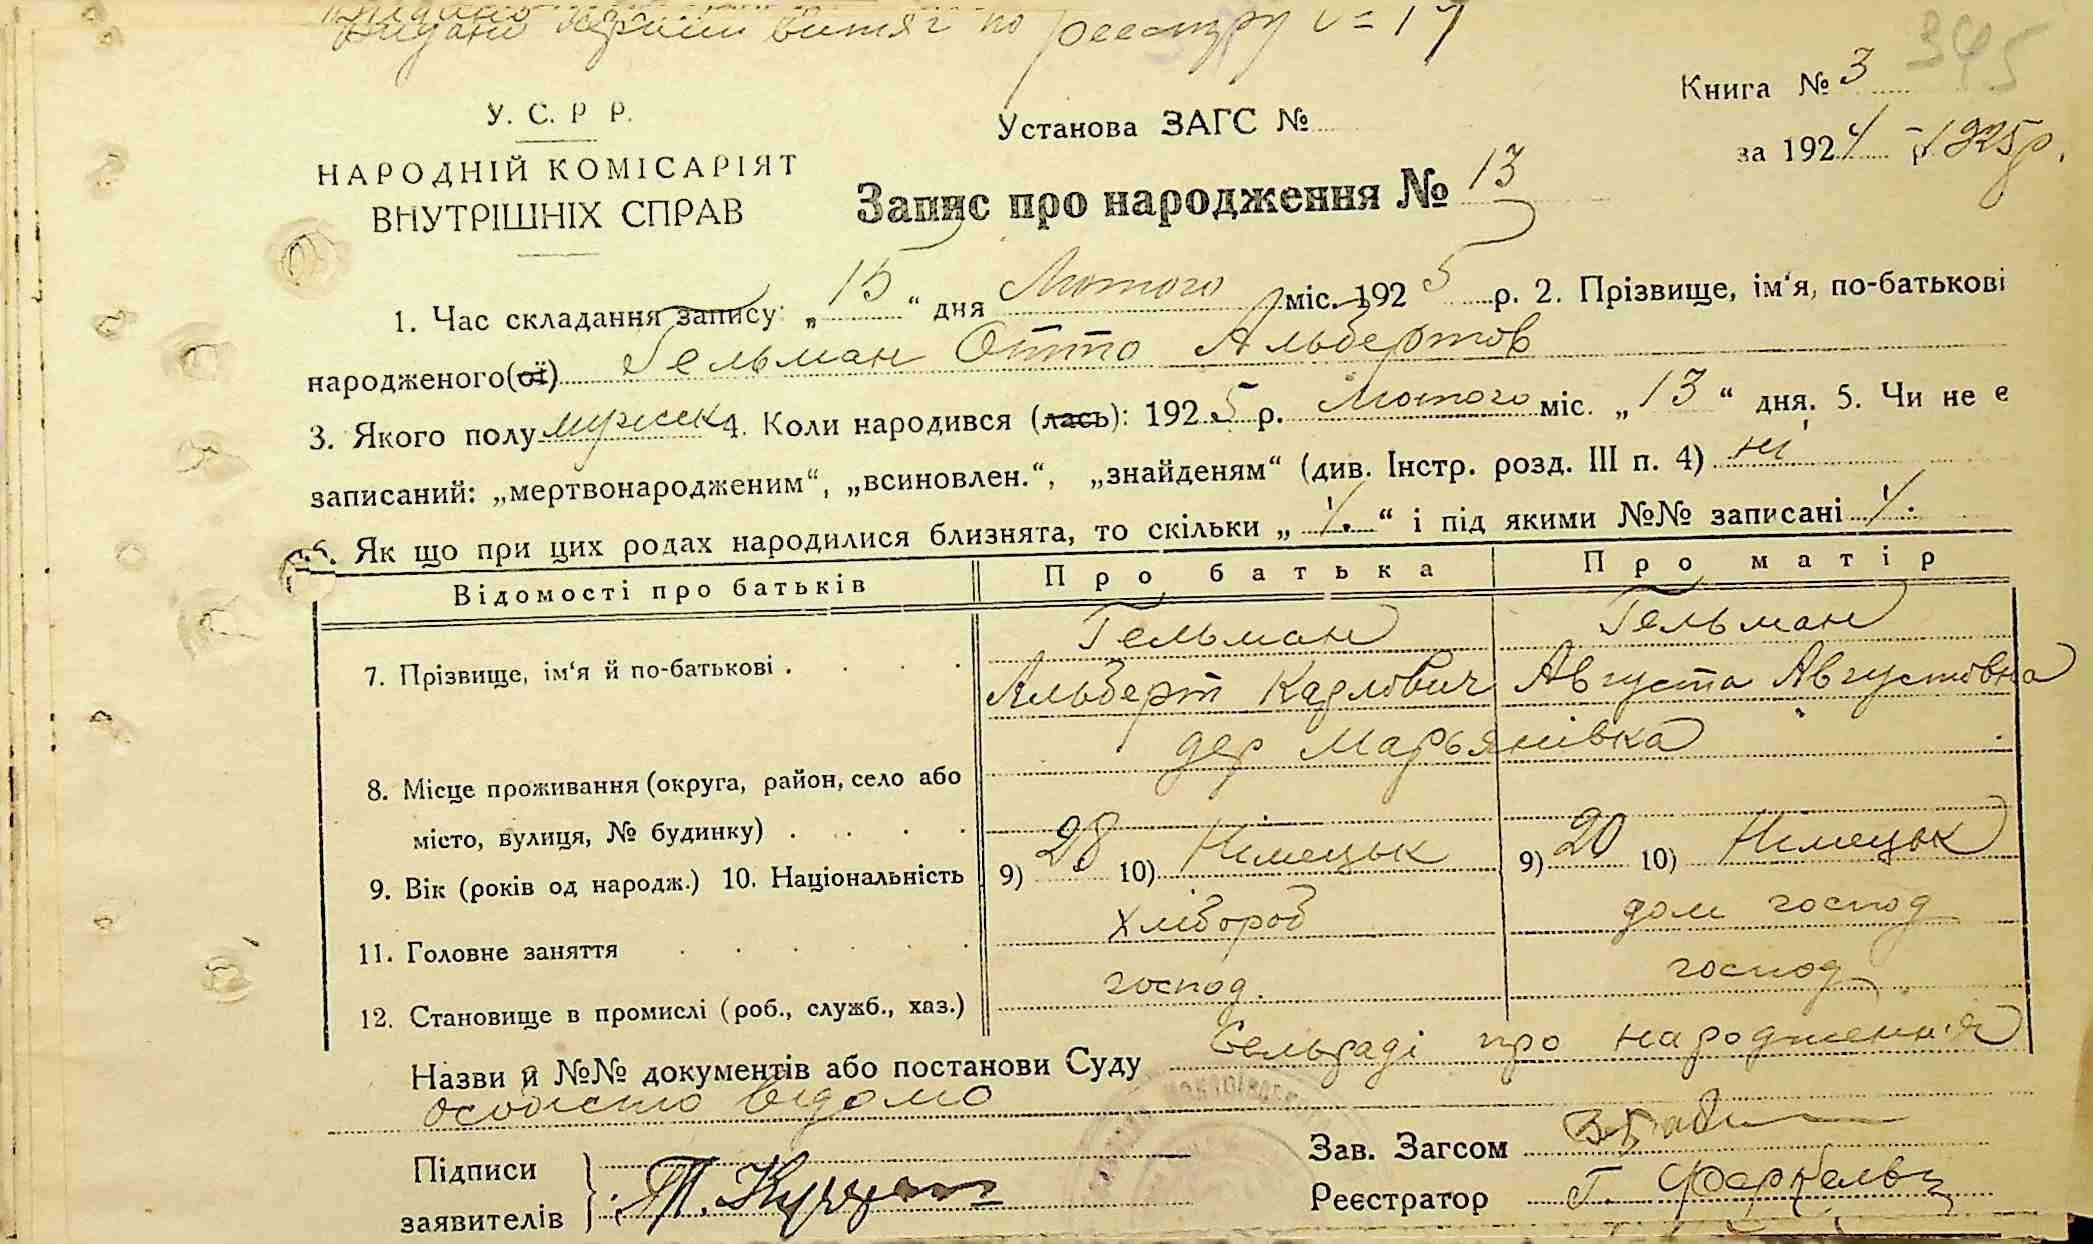 Видано перший витяг по реєстру
345
Книга № 3
У. С. Р Р.
Установа ЗАГС №
за 1924 - р 1925 р.
НАРОДНІЙ КОМІСАРІЯТ
ВНУТРІШНІХ СПРАВ
Запис про народження № 13
1. Час складання запису: „ 15 “ дня Лютого міс. 192 5 р. 2. Прізвище, ім‘я, по-батькові
народженого(ої) Гельман Отто Альбертов
3. Якого полу мужеск 4. Коли народився (лась): 192 5 р. Лютого міс. „ 13 “ дня. 5. Чи не є
записаний: „мертвонародженим“, „всиновлен.“, „знайденям“ (див. Інстр. розд. III п. 4) ні
6. Як що при цих родах народилися близнята, то скільки „ “ і під якими №№ записані
Відомості про батьків Про батька Про матір
Гельман Гельман
7. Прізвище, ім‘я й по-батькові . . . . .
Альберт Карлович Августа Августовна
дер Марьянівка
8. Місце проживання (округа, район, село або
місто, вулиця, № будинку) . . . .
9. Вік (років од народж.) 10. Національність 9) 28 10) Німецьк 9) 20 10) Німецьк
11. Головне заняття . . . . . Хлібороб дом господ
12. Становище в промислі (роб., служб., хаз.) господ. господ
Назви й №№ документів або постанови Суду Сельраді про народження
особисто відомо
Зав. Загсом
Підписи
заявителів
Реєстратор Г.